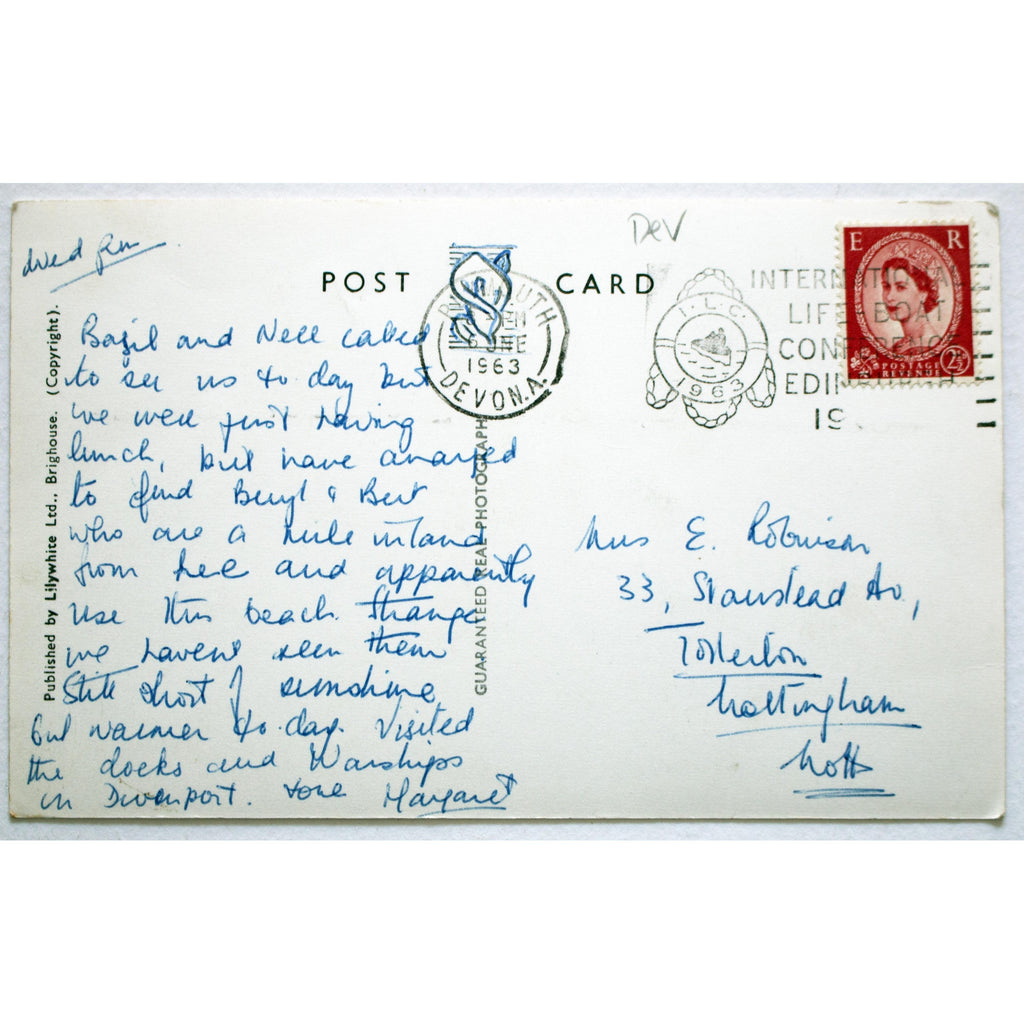 DeV
POST CARD
E R
POSTAGE
REVENUE
2½
JUNE
1963
DEVON.A.
I.L.C.
1963
INTERNATIONAL
LIFE-BOAT
CONFERENCE
EDINBURGH
19
Published by Lilywhite Ltd., Brighouse. (Copyright).
GUARANTEED REAL PHOTOGRAPH
Basil and Nell called
to see us to-day but
we were just having
lunch, but have arranged
to find Beryl & Bert
who are a mile inland
from here and apparently
use this beach. Strange
we havent seen them
Still short of sunshine
but warmer to-day. Visited
the docks and Warships
in Devonport. Love Margaret
Mrs E. Robinson
33, Stanstead Av.,
Tollerton
Nottingham
Notts